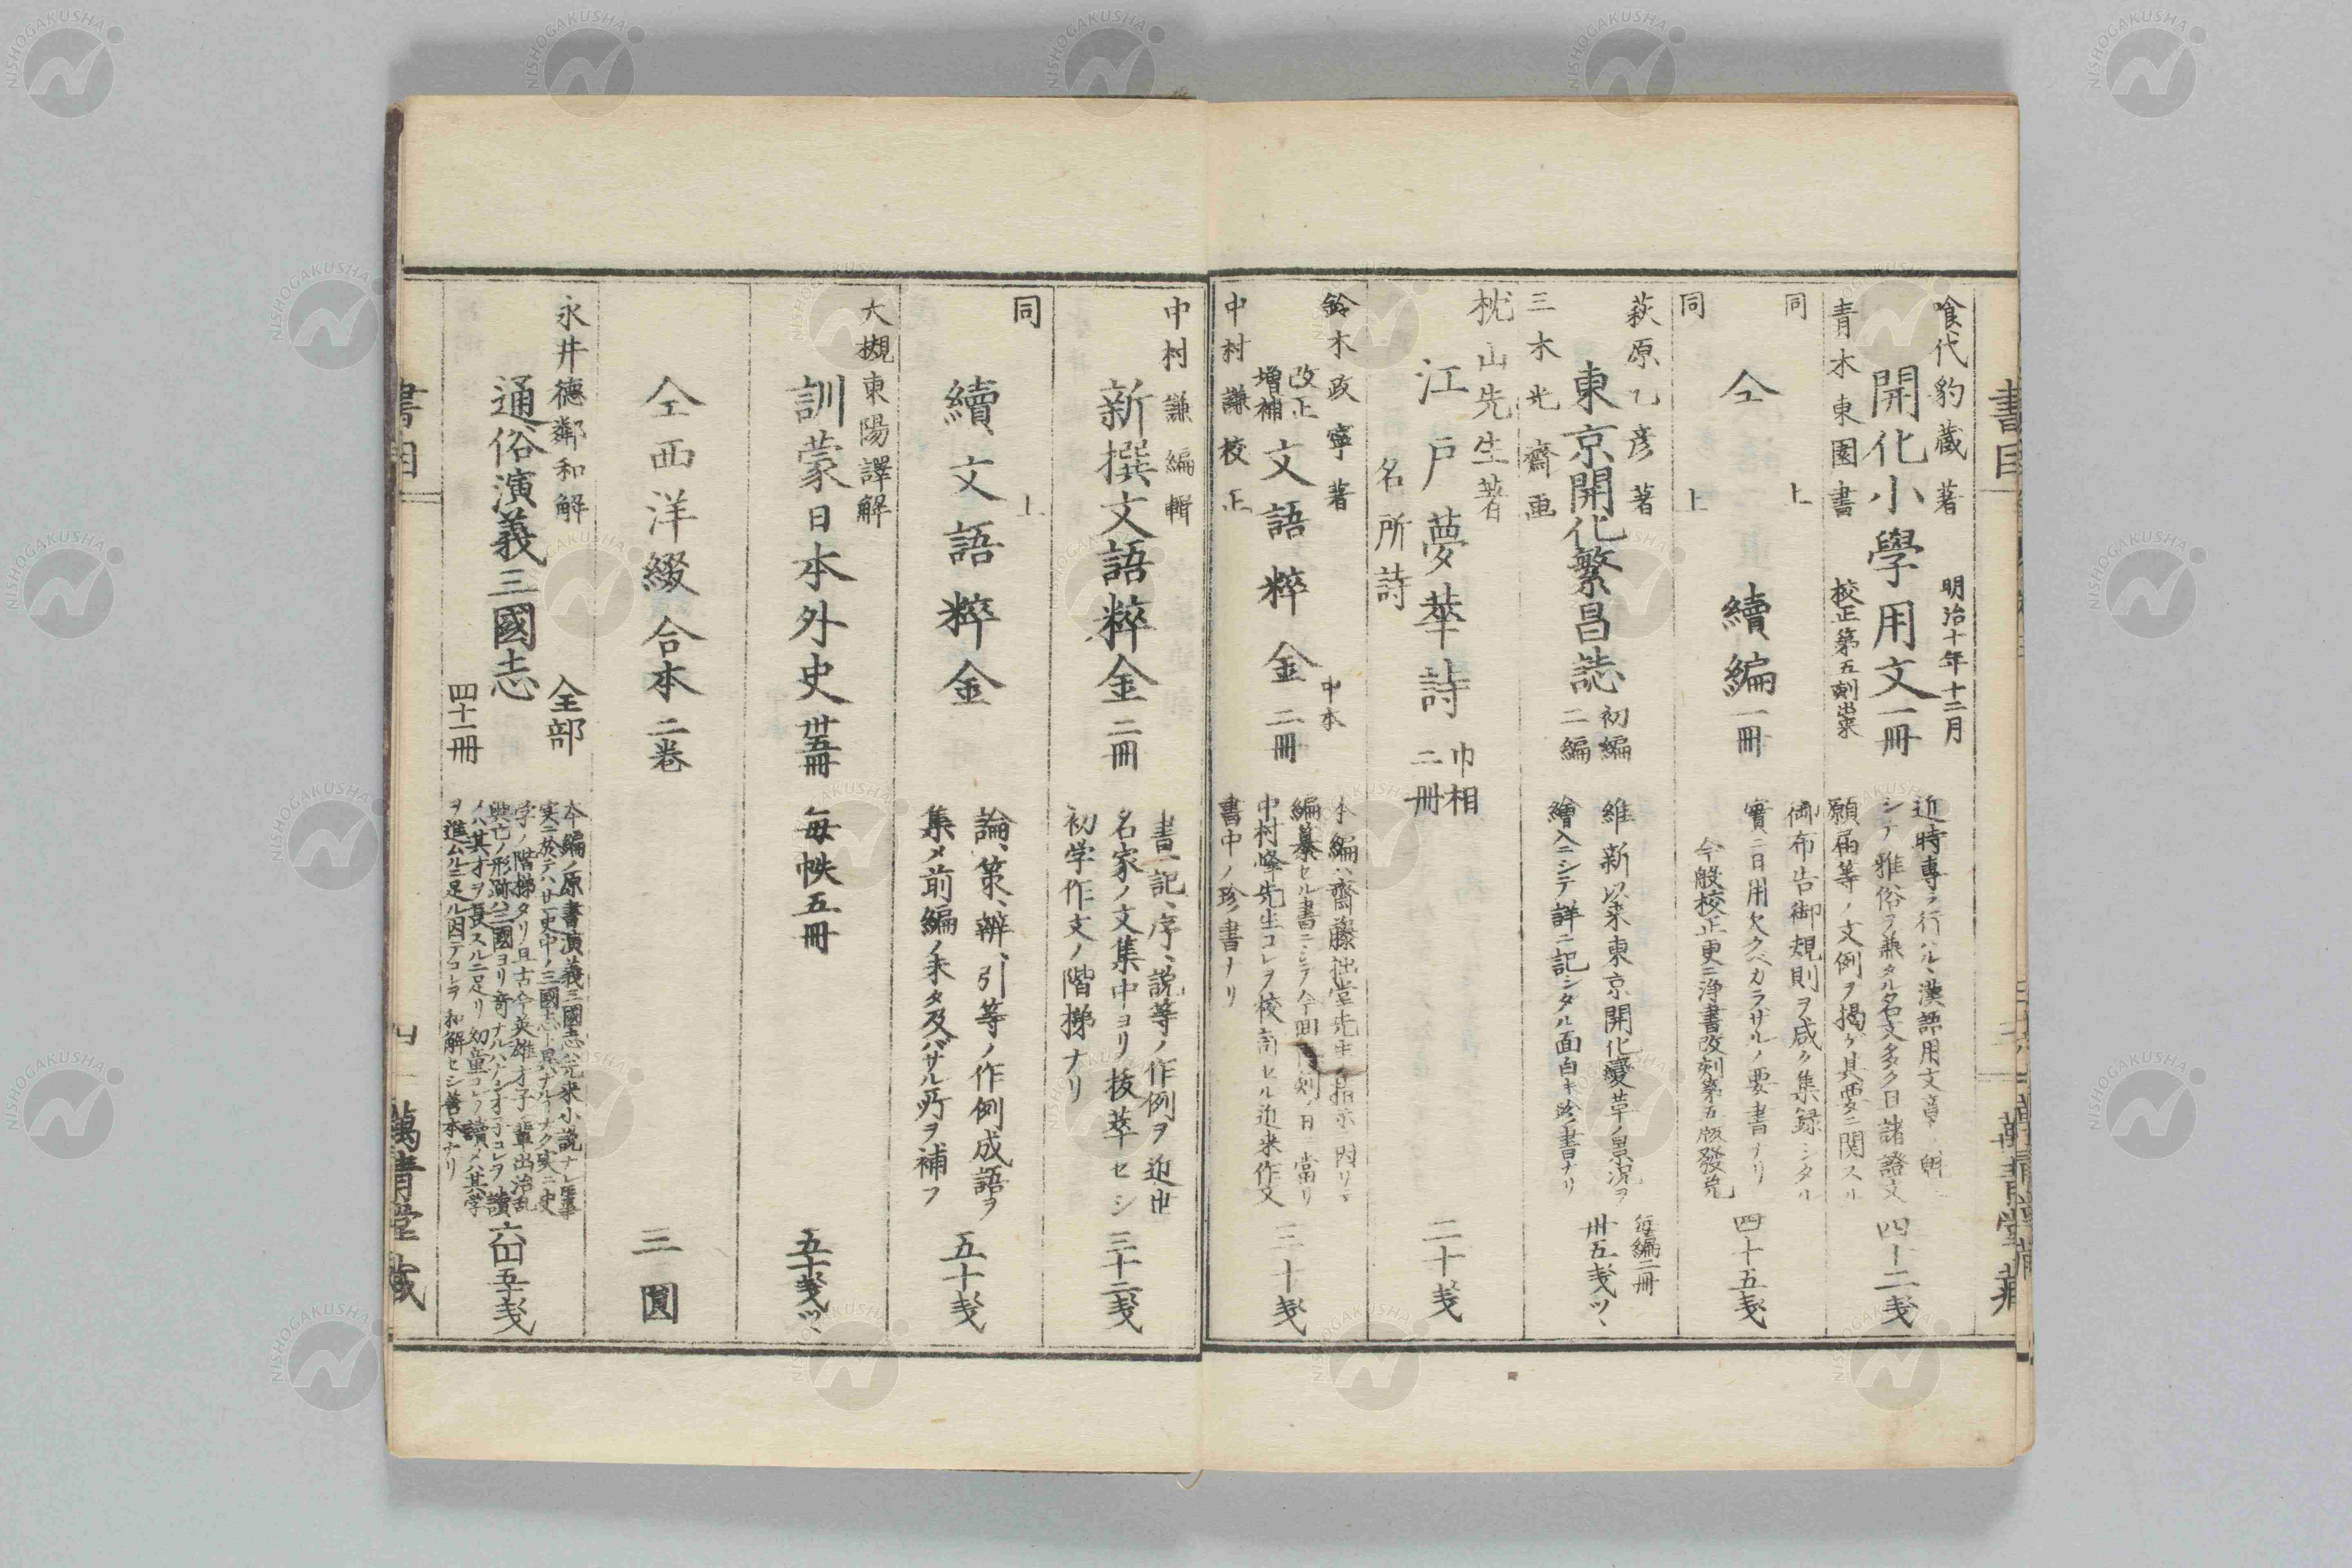 書目
萬青堂藏
喰代豹蔵著
開化小學用文一冊
青木東園書
明治十年十二月
校正第五刻出来
近時専ラ行ハル丶漢語用文章
シテ雅俗ヲ兼タル名文多ク日諸證文
願届等ノ文例ヲ掲ゲ其要ニ関スル
四十二戔
同上
仝續編一冊
同上
御布告御規則ヲ咸ク集録シタル
實ニ日用欠クベカラザルノ要書ナリ
今般校正更ニ浄書改刻第五版發兌
四十五戔
萩原乙彦著
東京開化繁昌誌
三木光齋画
初編
二編
維新以来東京開化變革ノ景況ヲ
繪入ニシテ詳ニ記シタル面白キ珍書ナリ
毎編二冊
卅五戔ツヽ
枕山先生著
江戸夢華詩
名所詩
巾相
二冊
二十戔
鈴木政寧著
改正
増補
文語粹金二冊
中村謙校正
中本
本編ハ齋藤拙堂先生ノ指示ニ因リテ
編纂セル書ニシテ今回刻
中村峰先生コレヲ校訂セル近来作文
書中ノ珍書ナリ
三十戔
中村謙編輯
新撰文語粹金二冊
書、記、序、説等ノ作例ヲ近世
名家ノ文集中ヨリ抜萃セシ
初学作文ノ階梯ナリ
三十二戔
同上
續文語粹金
論、策、辨、引等ノ作例成語ヲ
集メ前編ノ未タ及バサル所ヲ補フ
五十戔
大槻東陽譯解
訓蒙日本外史卅五冊
毎帙五冊
五十戔ツヽ
仝西洋綴合本二巻
三圓
永井德鄰和解
通俗演義三國志
全部
四十一冊
本編ノ原書演義三國志ハ元来小説ナレ𪜈事
実ニ於テハ廿一史中ノ三國志ト異ナルナク実ニ史
学ノ階梯タリ且古今英雄才子ノ輩出治乱
興亡ノ形跡ハ三國ヨリ奇ナルハナシ才子コレヲ讀
メハ其才ヲ長スルニ足リ幼童コレヲ讀メハ其学
ヲ進ムルニ足ル因テコレヲ和解セシ善本ナリ
六四五十戔
書目
四
萬青堂藏